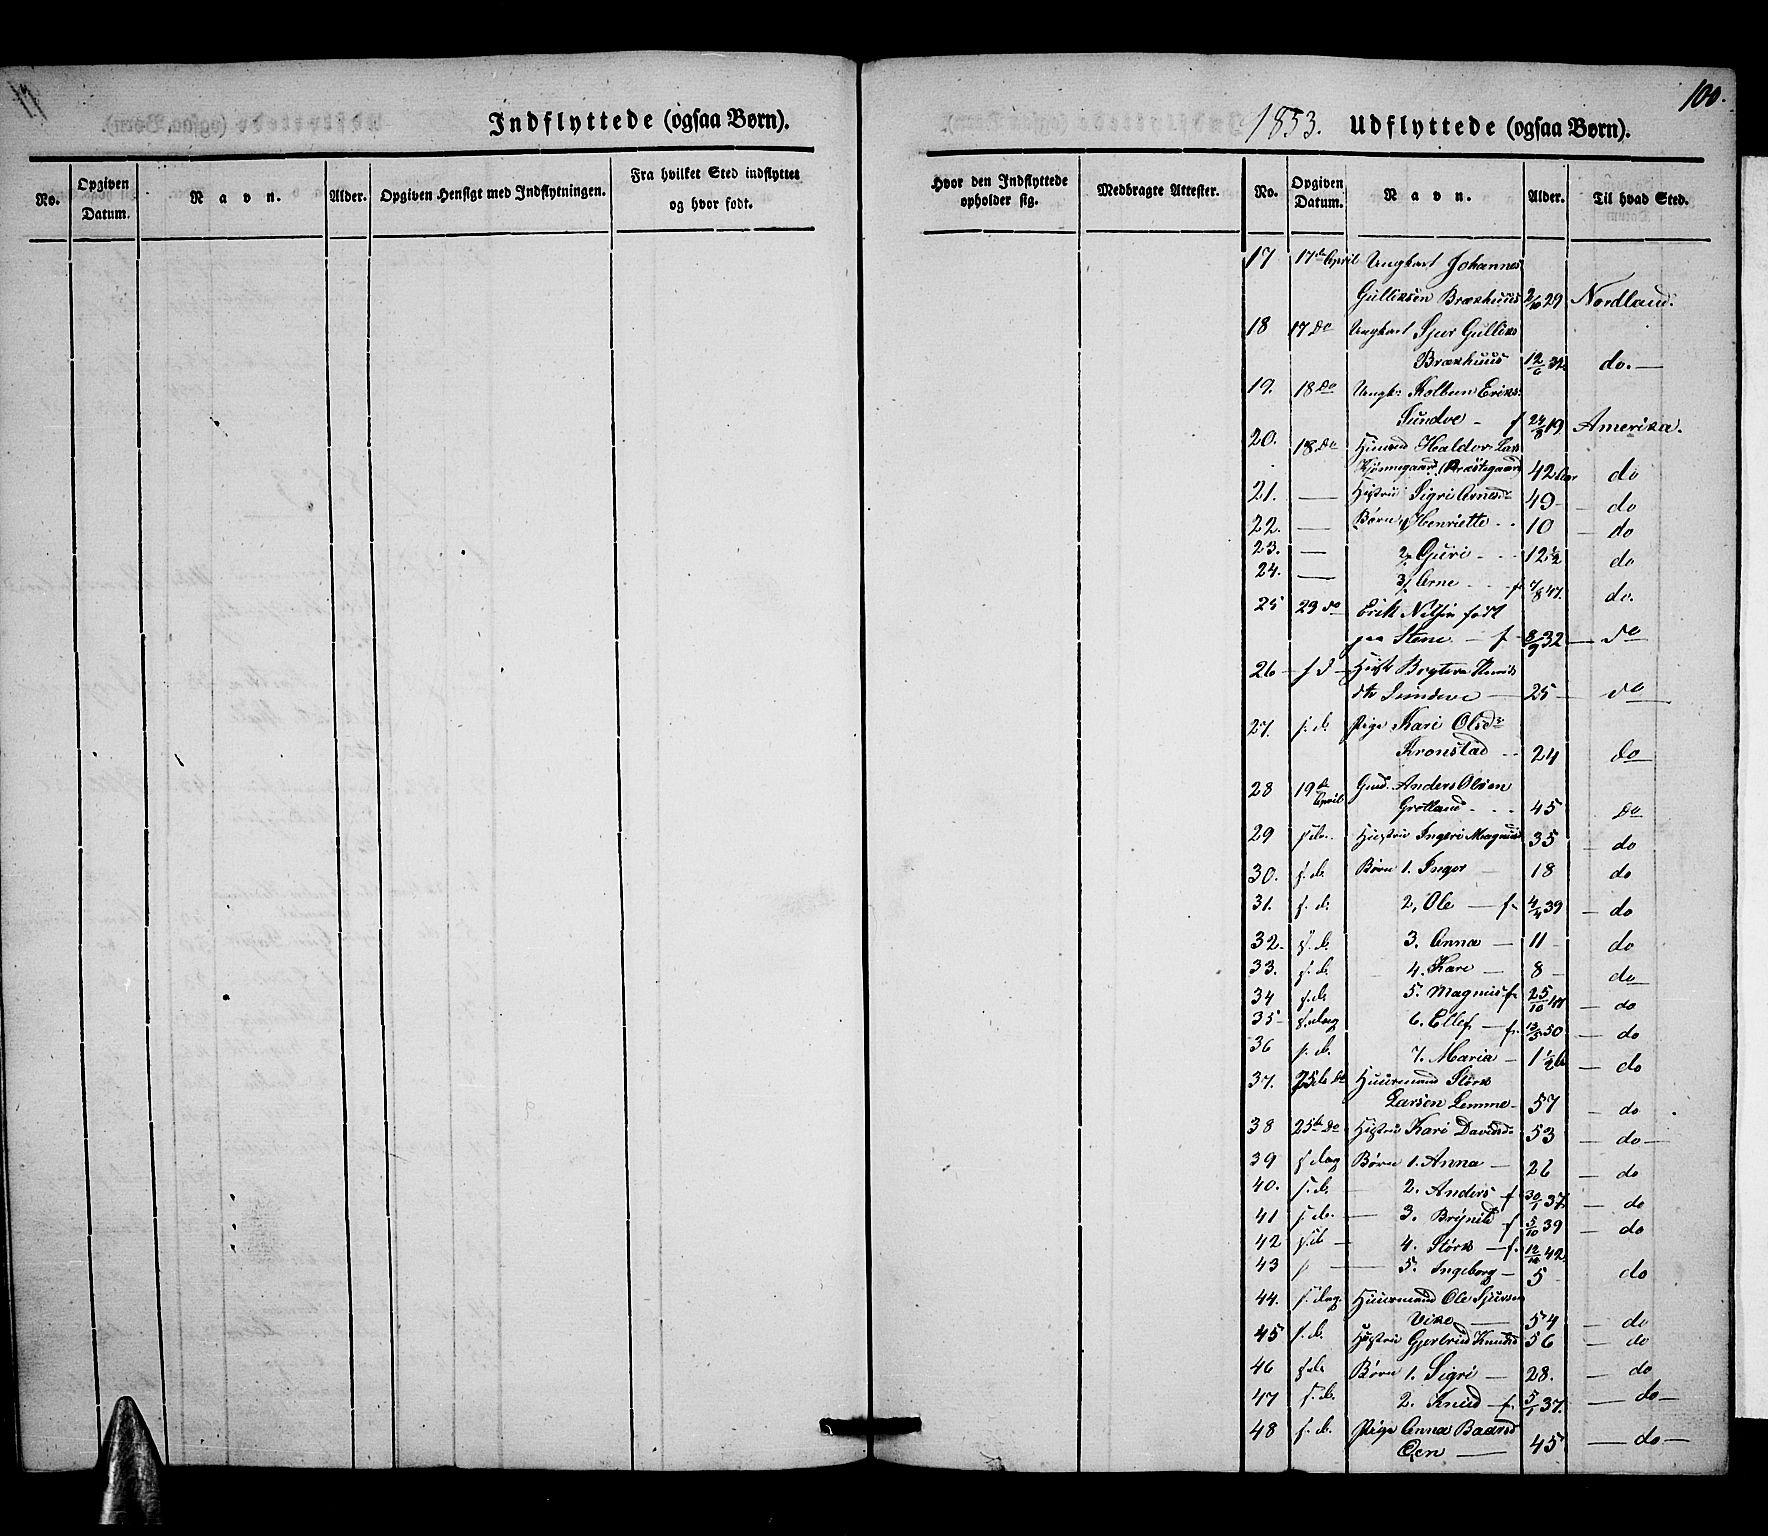 Indflyttede (ogsaa Børn).
No. Opgiven Datum. Navn. Alder. Opgiven Hensigt med Indflytningen. Fra hvilket Sted indflyttet og hvor født.
100.
1853. Udflyttede (ogsaa Børn).
Hvor den Indflyttede opholder sig. Medbragte Attester. No. Opgiven Datum. Navn. Alder. Til hvad Sted.
17 17de April Ungkarl Johannes
Gulliksen Brækhuus 2/10 29 Nordland.
18 17 Do Ungkarl Sjur Gulliks
Brækhuus 12/6 32 do.
19. 18 Do Ungk: Kolbein Eriks:
Tundve - f 24/8 19 Amerika.
20. 18 Do Huusmd Haldor Lars
Kjønnegaard (Præstegaard) 42 Aar do
21. — Hustru Sigri Arnesd: 49 - do
22. — Børn: 1, Henriette 10 - do
23. — 2, Guri 12 1/2 do
24. — 3, Arne f. 7/8 47. do.
25 23 do Erik Nilsen født
paa Stene. - f - 8/9 32 — do
26 - s d - Bryteva Knuds
dtr Sundeve — 25 - do
27. s. d. Pige Kari Olsdr
Kronstad 24 do
28 19de April Gmd. Anders Olsen
Grotland 45 do
29 s. d. Hustru Ingeri Magnusd 35 do
30. s. d. Børn 1. Inger — 18 do
31. s. d. 2, Ole — f. 4/4 39 - do
32. s. d. 3. Anna — 11 - do
33. s. d. 4. Kari — 8 - do
34 s. d. 5. Magnus f. 25/10 47 - do
35 s. dag 6. Ellef — f. 13/5 50 - do
36 s. d. 7. Maria — 1 1/2 - do
37. 25de Do Huusmand Størk
Larsen Lemme - 57 - do
38 25de Do Hustru Kari Davidsd: 53 - do -
39 s dag Børn 1. Anna — 26 - do
40. s. d. — 2. Anders f 30/1 37. - do
41 s. d. — 3. Brynild f 5/10 39 - do
42 s. d — 4. Størk — f. 12/12 42
43 s — 5. Ingeborg — 5 - do
44. s. dag. Huusmand Ole Sjursen
Vike — 54 - do
45 s. d. Hustru Gjertrud Knudsd 56 - do
46 s. d. Børn 1. Sigri — 28. - do
47 s. d. 2. Knud — f. 5/1 37. — do -
48 s. d. Pige Anna Baardsd
Øen — 45 — do -